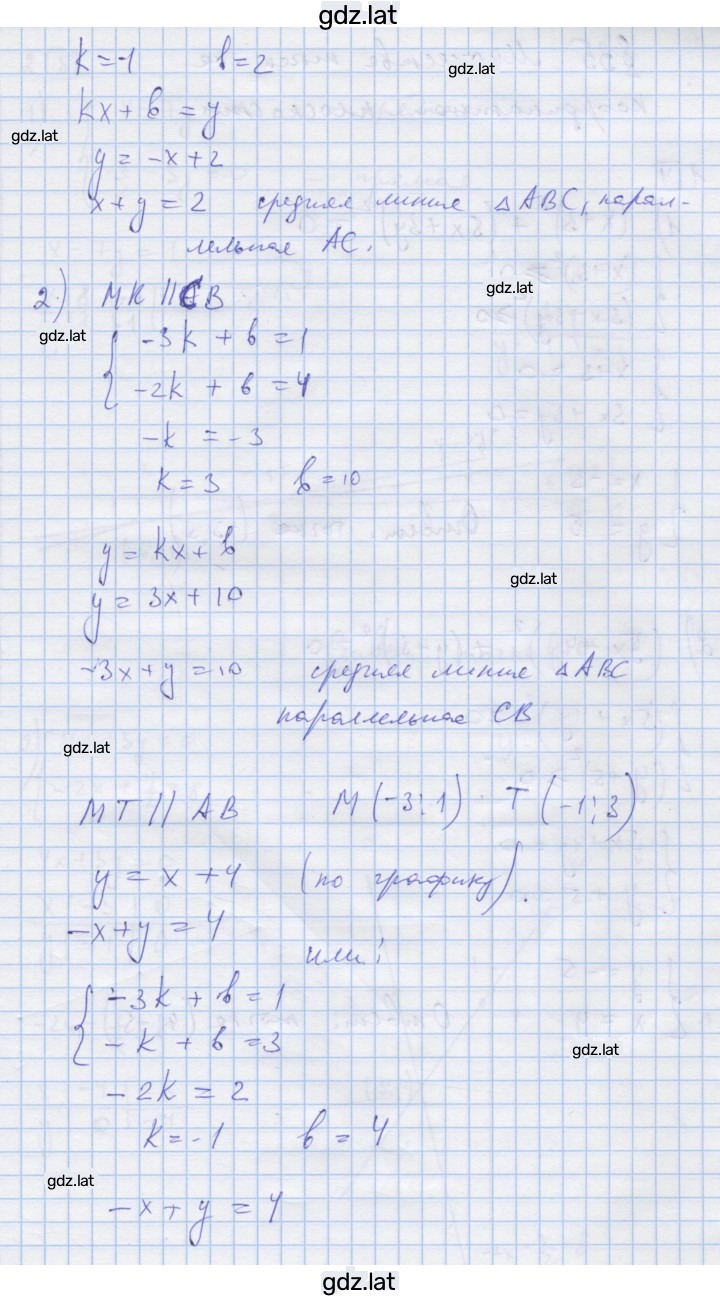 gdz.lat
k=-1 b=2
gdz.lat
kx+b=y
gdz.lat
y=-x+2
x+y=2 средняя линия △ABC, парал-
лельная AC.
gdz.lat
2) MK||CB
gdz.lat
{ -3k+b=1
-2k+b=4
-k=-3
k=3 b=10
y=kx+b
gdz.lat
y=3x+10
-3x+y=10 средняя линия △ABC
параллельная CB
gdz.lat
MT||AB M(-3;1) T(-1;3)
y=x+4 (по графику).
-x+y=4
или:
{ -3k+b=1
-k+b=3
gdz.lat
-2k=2
k=-1 b=4
gdz.lat
-x+y=4
gdz.lat